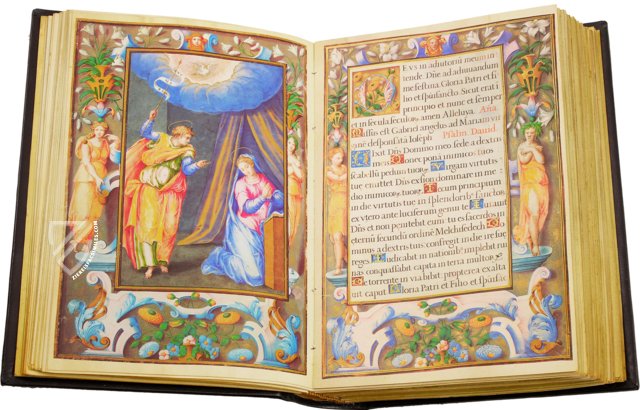 EVS in adiutoriũ meum in
tende. Dñe ad adiuuandum
me festina Gloria Patri et fi
lio et spũi sancto. Sicut erat i
principio et nunc et semper
et in secula seculorũ. amen Alleluya. Aña.
Missus est Gabriel angelus ad Mariam vir
ginē desponsatā Ioseph Psalm. Dauid.
Dixit Dñs Domino meo sede a dextris
meis Donec ponā inimicos tuos
scabellũ pedum tuorũ. Virgam virtutis
tuę emittet Dñs ex sion dominare in me
inimicorũ tuorũ. Tecum principium
in die virtutis tuę in splendoribus sanctorũ
ex vtero ante luciferum genui te Iurauit
Dñs et non penitebit eum tu es sacerdos in
eternũ secundũ ordinē Melchisedech.
a dextris tuis confregit in die irę suę
reges Iudicabit in nationibus implebit rui
nas conquassabit capita in terra multorũ
De torrente in via bibet propterea exalta
bit caput Gloria Patri et Filio et spũi san
ZIEREIS FAKSIMILES